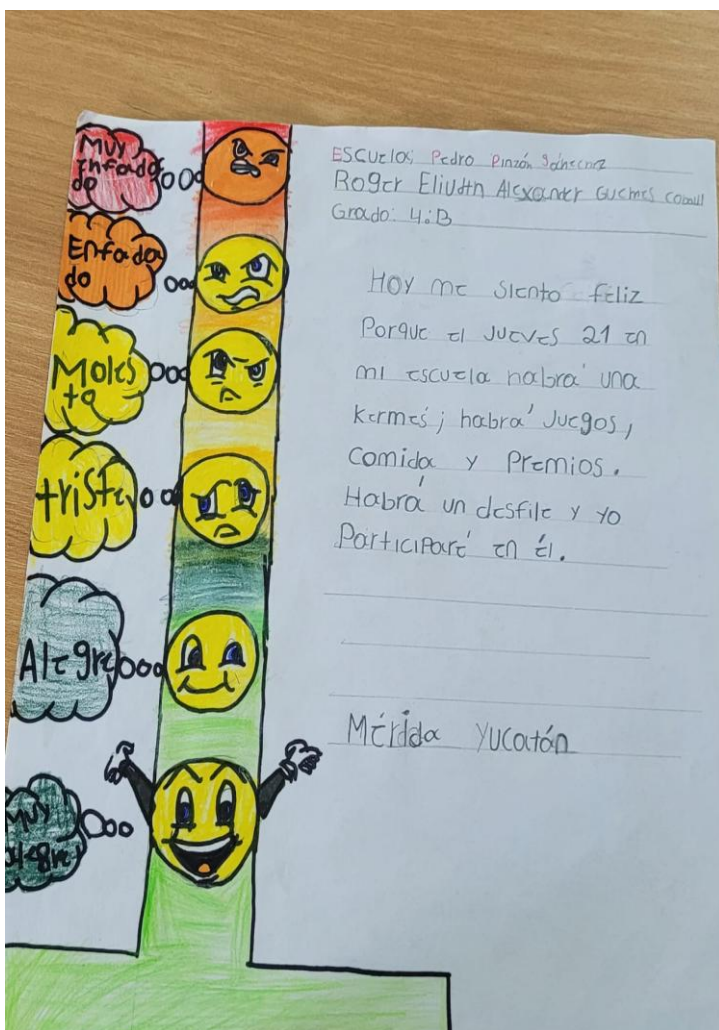 Muy
Enfada
do
Enfada
do
Moles
to
triste
Alegre
Muy
Alegre
Escuela; Pedro Pinzón Sánchez
Roger Alexander Guemes
Grado: 4.B
Hoy me siento feliz
Porque el Jueves 21 en
mi escuela habrá una
Kermés; habrá Juegos,
Comida y Premios.
Habrá un desfile y yo
Participaré en él.
Mérida Yucatán